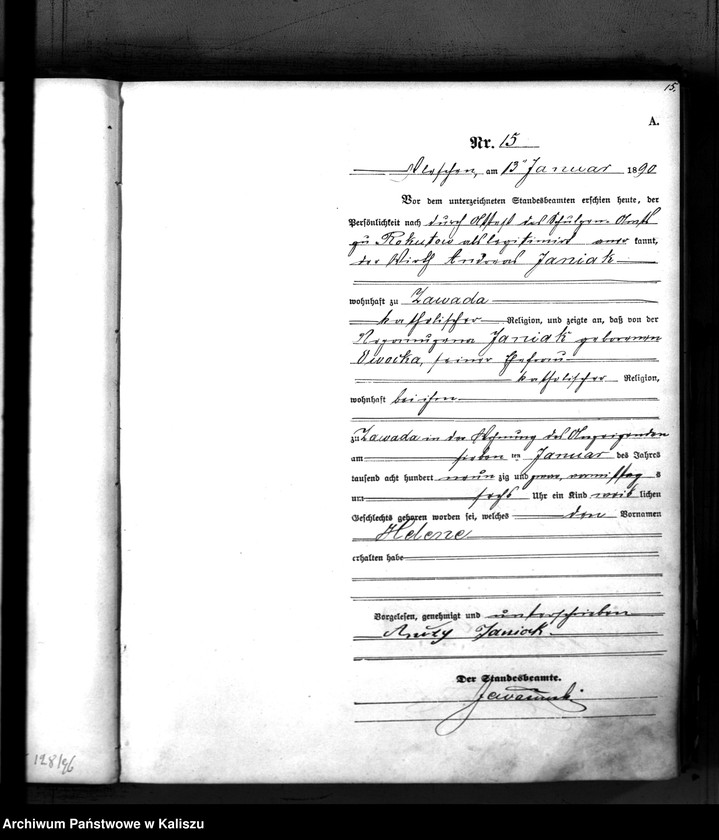 15.
A.
Nr. 15
Pleschen, am 13ten Januar 1890
Vor dem unterzeichneten Standesbeamten erschien heute, der
Persönlichkeit nach durch Attest des Schulzen-Amts
zu Rokutow als legitimirt aner kannt,
der Wirth Andreas Janiak
wohnhaft zu Zawada
katholischer Religion, und zeigte an, daß von der
Janiak geborenen
seiner Ehefrau
katholischer Religion,
wohnhaft bei ihm
zu Zawada in der Wohnung des Anzeigenden
am sieben ten Januar des Jahres
tausend acht hundert neun zig und zwar vormittag s
um sechs Uhr ein Kind weib lichen
Geschlechts geboren worden sei, welches den Vornamen
Helene
erhalten habe
Vorgelesen, genehmigt und unterschrieben
Janiak.
Der Standesbeamte.
128/96
Archiwum Państwowe w Kaliszu